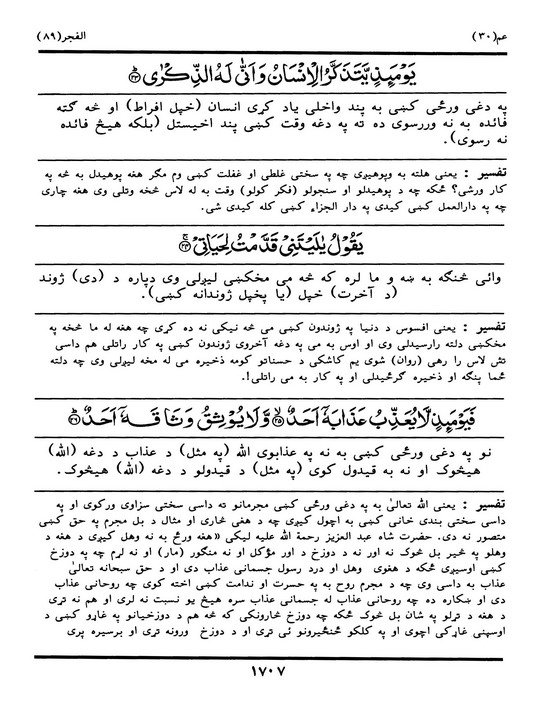 عم(٣٠)
الفجر(٨٩)
يَوْمَىِٕذٍ يَّتَذَكَّرُ الْاِنْسَانُ وَاَنّٰى لَهُ الذِّكْرٰى ﴿٢٣﴾
په دغې ورځې کښې به پند واخلي ياد کړي انسان (خپل افراط) او څه ګټه
فائده به نه وررسوي ده ته په دغه وقت کښې پند اخيستل (بلکه هيڅ فائده
نه رسوي).
تفسير : يعنې هلته به وپوهيږي چه په سختې غلطۍ او غفلت کښې وم مګر هغه پوهيدل به څه په
کار ورشي؟ ځکه چه د پوهيدلو او سنجولو (فکر کولو) وقت به له لاس څخه وتلی وي هغه چارې
چه په دارالعمل کښې کيدې په دار الجزاء کښې کله کيدی شي.
يَقُوْلُ يٰلَيْتَنِيْ قَدَّمْتُ لِحَيَاتِيْ ﴿٢٤﴾
وائي څنګه به ښه و ما لره که څه مې مخکښې ليږلي وی دپاره د (دې) ژوند
(د آخرت) خپل (يا پخپل ژوندانه کښې).
تفسير : يعنې افسوس د دنيا په ژوندون کښې مې څه نيکي نه ده کړې چه هغه له ما څخه په
مخکښې دلته رارسيدلې وی او اوس به مې په دغه آخروي ژوندون کښې په کار راتلی هم داسې
تش لاس را رهي (روان) شوی يم کاشکې د حسناتو کومه ذخيره مې له مخه ليږلې وی چه دلته
ځما پنګه او ذخيره ګرځيدلې او په کار به مې راتلی!.
فَيَوْمَىِٕذٍ لَّا يُعَذِّبُ عَذَابَهٗٓ اَحَدٌ ﴿٢٥﴾ وَّلَا يُوْثِقُ وَثَاقَهٗٓ اَحَدٌ ﴿٢٦﴾
نو په دغې ورځې کښې به نه په عذابوي الله (په مثل) د عذاب د دغه (الله)
هيڅوک او نه به قيدول کوي (په مثل) د قيدولو د دغه (الله) هيڅوک.
تفسير : يعنې الله تعالیٰ به په دغې ورځې کښې مجرمانو ته داسې سختې سزاوې ورکوي او په
داسې سختې بندي خانې کښې به اچول کيږي چه د هغې څاري او مثال د بل مجرم په حق کښې
متصور نه دي. حضرت شاه عبد العزيز رحمة الله عليه ليکي «هغه ورځ به نه وهل کيږي د هغه د
وهلو په څير بل څوک نه اور نه د دوزخ د اور مؤکل او نه منګور (مار) او نه لړم چه په دوزخ
کښې اوسيږي ځکه د هغوی وهل او درد رسول جسماني عذاب دی او د حق سبحانه تعالیٰ
عذاب به داسې وي چه د مجرم روح به په حسرت او ندامت کښې اخته کوي چه روحاني عذاب
دی او ښکاره ده چه روحاني عذاب له جسماني عذاب سره هيڅ يو نسبت نه لري او هم نه تړي
د هغه د تړلو په شان بل څوک ځکه چه دوزخ څارونکي که څه هم د دوزخيانو په غاړو کښې د
اوسپنې غاړکۍ اچوي او په کلکو ځنځيرونو ئې تړي او د دوزخ ورونه تړي او برسيره پرې
١٧٠٧